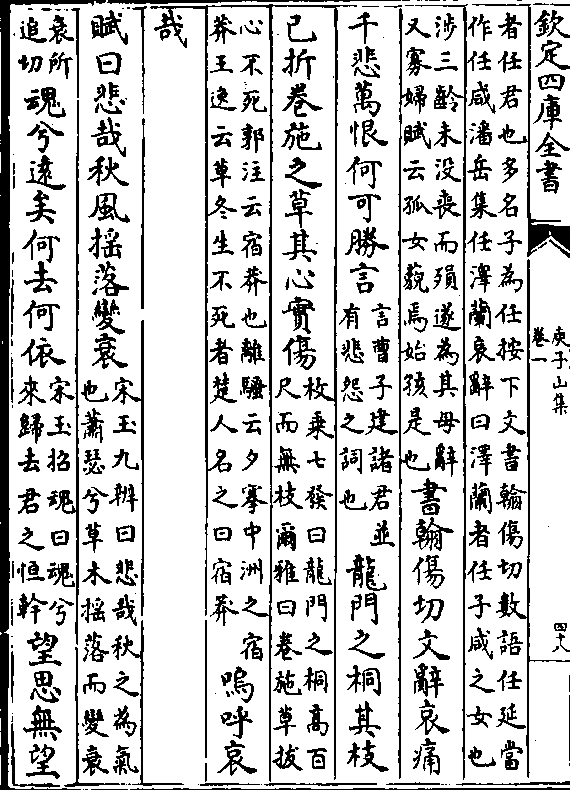 欽定四庫全書
庾子山集
卷一
四十八
者任君也多名子為任按下文書翰傷切數語任延當
作任咸潘岳集任澤蘭哀辭曰澤蘭者任子咸之女也
涉三齡未没喪而殞遂為其母辭
又寡婦賦云孤女藐焉始孩是也
書翰傷切文辭哀痛
千悲萬恨何可勝言
言曹子建諸君並
有悲怨之詞也
龍門之桐其枝
已折卷施之草其心實傷
枚乗七發曰龍門之桐髙百
尺而無枝爾雅曰卷施草拔
心不死郭注云宿莽也離騷云夕搴中洲之宿
莽王逸云草冬生不死者楚人名之曰宿莽
嗚呼哀
哉
賦曰悲哉秋風揺落變衰
宋玉九辨曰悲哉秋之為氣
也蕭瑟兮草木揺落而變衰
衰所
追切
魂兮逺矣何去何依
宋玉招魂曰魂兮
來歸去君之恒幹
望思無望